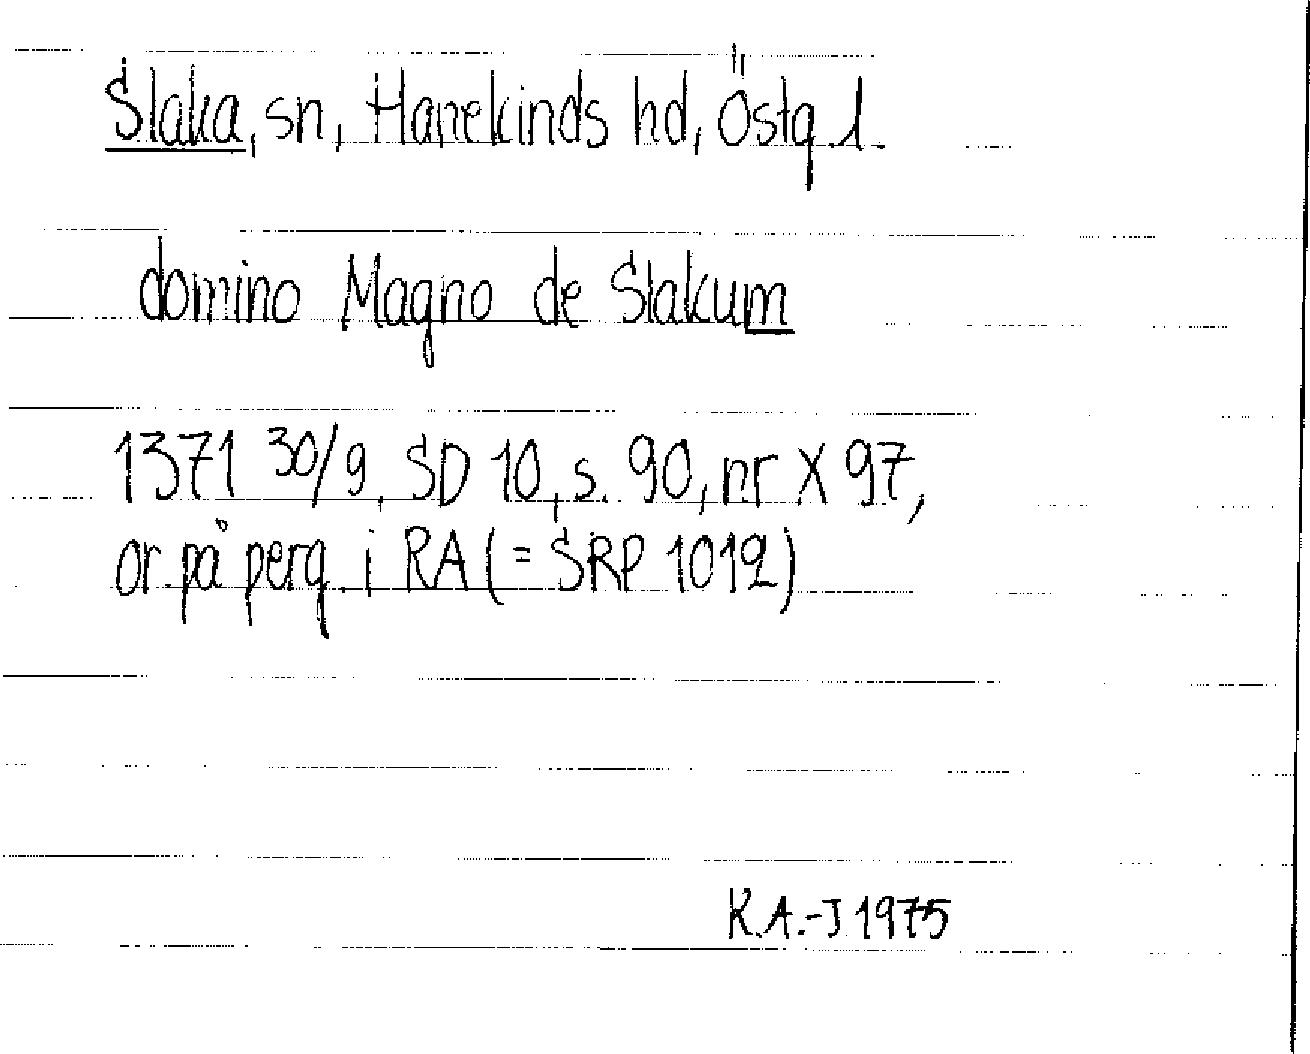 Slaka, sn, Hanekinds hd, Östg l.
domino Magno de Slakum
1371 30/9, SD 10, s. 90, nr X 97,
or på perg. i RA (= SRP 1012)
K.A.-J 1975